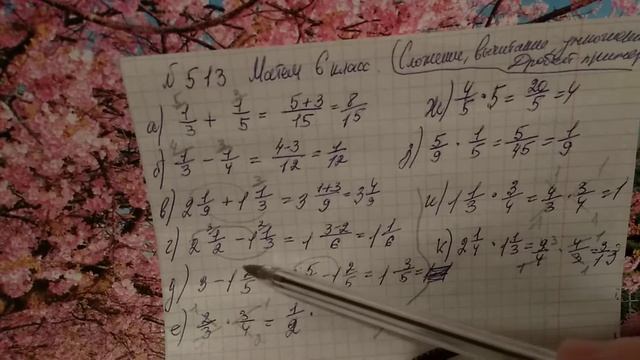 №513 Матем 6 класс. (Сложение, вычитание, умножение
Дробей
а) 1/3 + 1/5 = (5+3)/15 = 8/15
б) 1/3 − 1/4 = (4-3)/12 = 1/12
в) 2 1/9 + 1 1/3 = 3 (1+3)/9 = 3 4/9
г) 2 1/2 − 1 1/3 = 1 (3-2)/6 = 1 1/6
д) 3 − 1 2/5 − 1 2/5 = 1 3/5 =
е) 2/3 · 3/4 = 1/2 .
ж) 4/5 · 5 = 20/5 = 4
з) 5/9 · 1/5 = 5/45 = 1/9
и) 1 1/3 · 3/4 = 4/3 · 3/4 = 1
к) 2 1/4 · 1 1/3 = 9/4 · 4/3 =